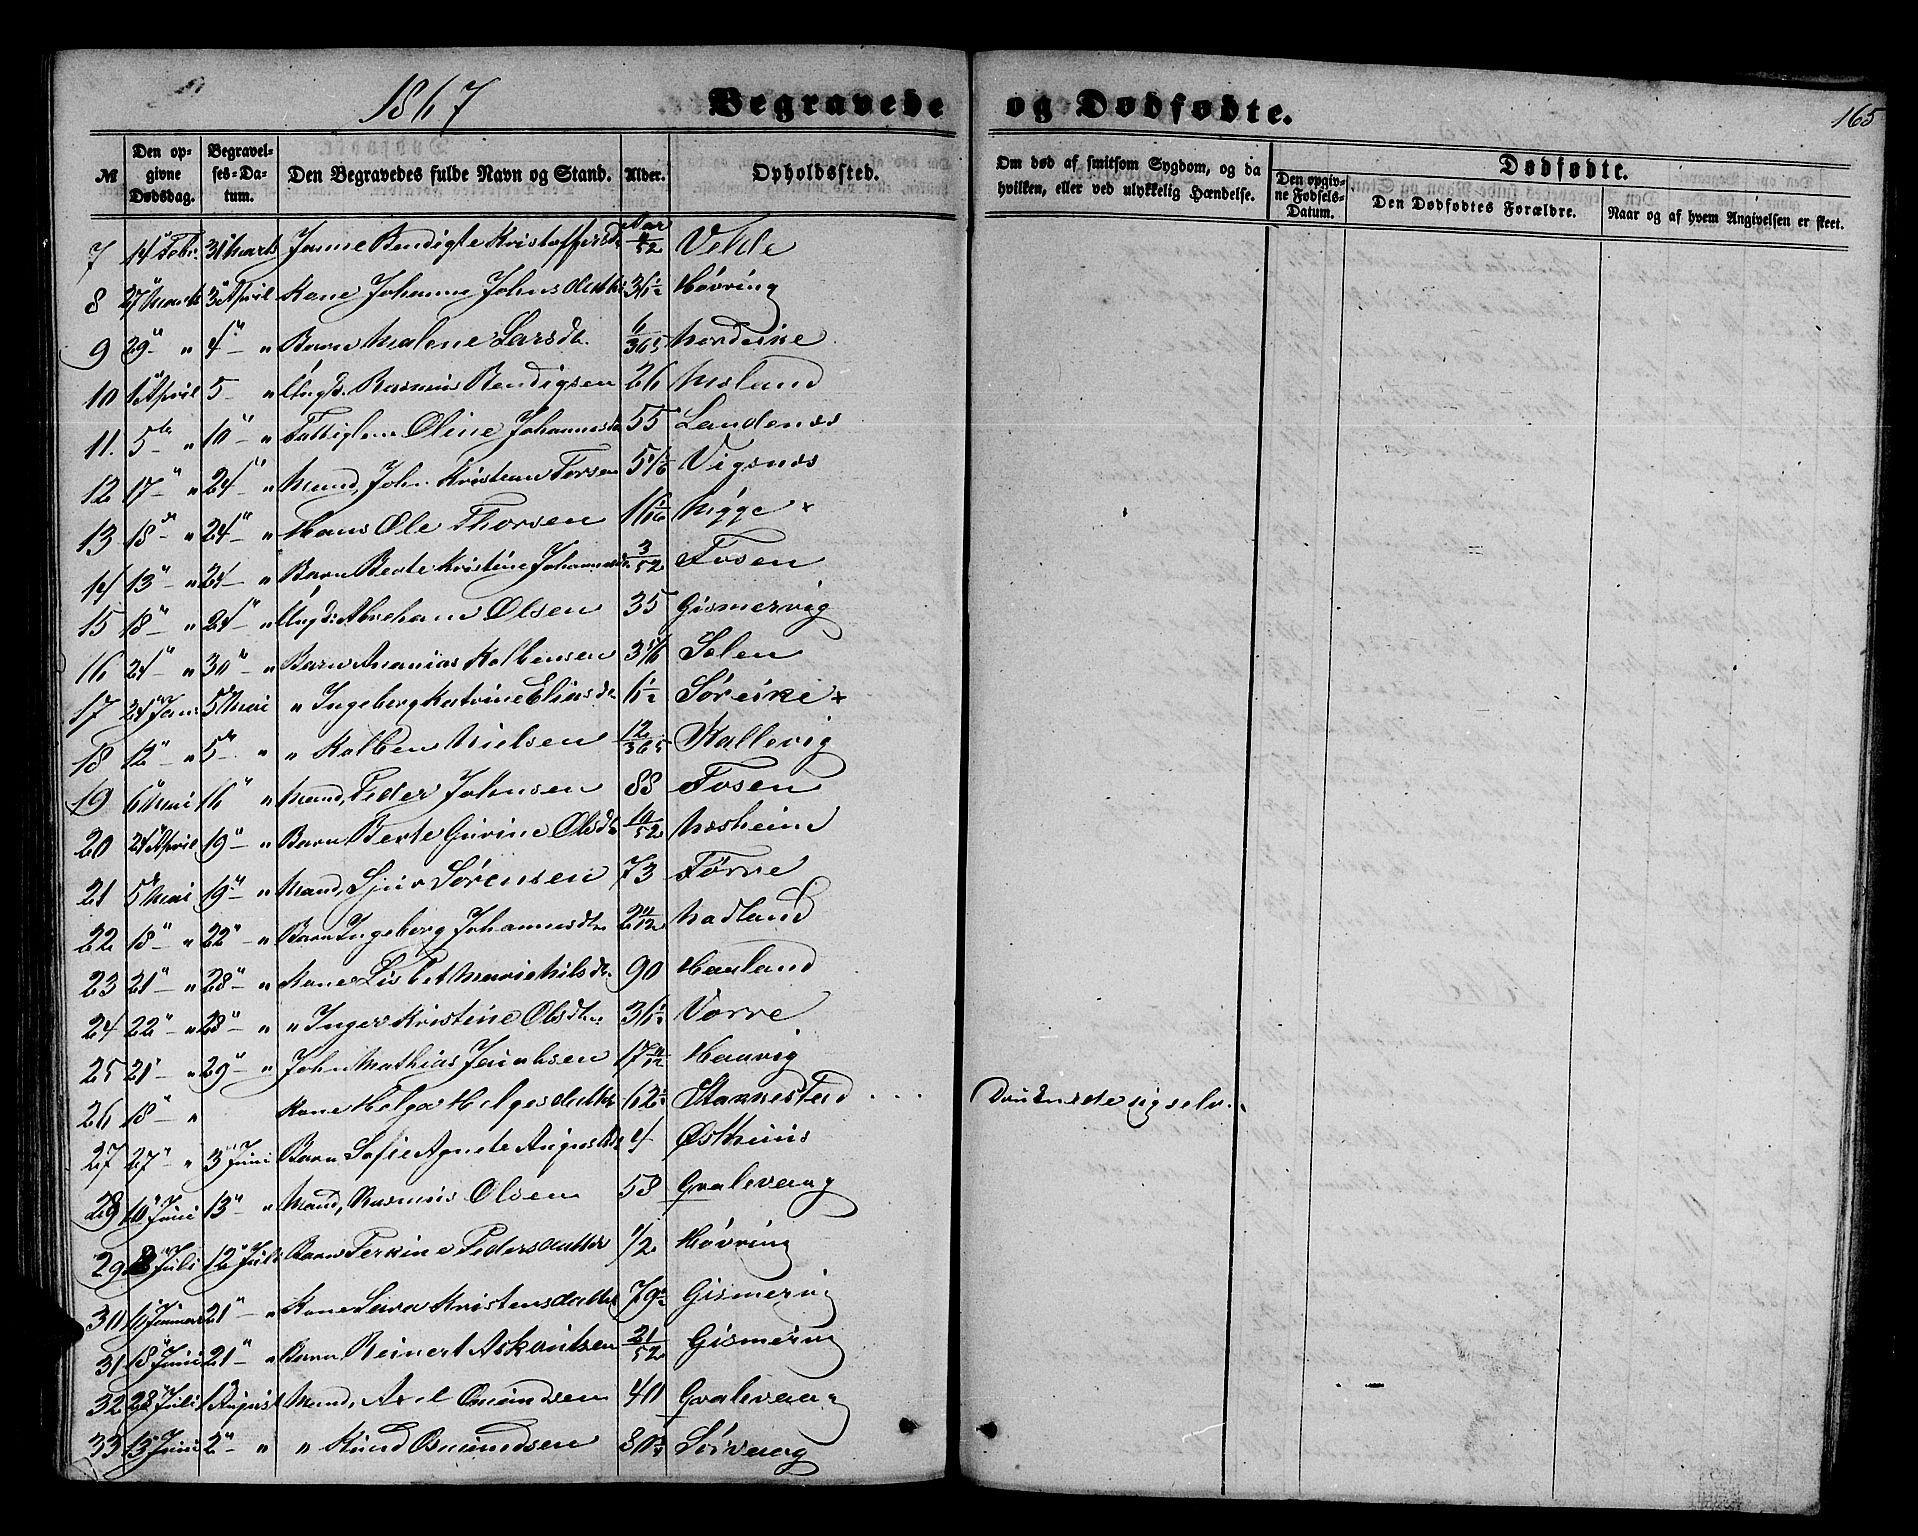 1867 Begravede og Dødfødte. 165
№ Den opgivne Dødsdag. Begravelses-Datum. Den Begravedes fulde Navn og Stand. Alder. Opholdssted. Om død af smitsom Sygdom, og da hvilken, eller ved ulykkelig Hændelse. Dødfødte. Den opgivne Fødsels-Datum. Den Dødfødtes Forældre. Naar og af hvem Angivelsen er skeet.
Aar
7 14 Febr. 31 Marts Janne Bendigte Kristoffersdt /52 Velde
8 27 Marts 3 April Kone Johanne Johnsdatter 36½ Høvring
9 29 " 4 " Barn Malene Larsdt. 6/365 Nordeike
10 1 April 5 " Ungk. Rasmus Bendigsen 26 Mæland
11. 5 " 10 " Fattiglem Oline Johannesdt 55 Landenæs
12 17 " 24 " Mand, John Kristian Torsen Vigsnæs
13 18 " 24 " Hans Ole Thorsen Nygge +
14 13 " 24 " Barn Berte Kristine Johannesdt. 3/52 Fosen
15 18 " 24 " Ungk. Abraham Olsen 35 Gismervig
16 24 " 30 " Barn Ananias Kolbensen Solen
17 24 Jan. 5 Mai " Ingeborg Katrine Eliasdt Søreike +
18 12 " 5 " " Kolben Nielsen 12/365 Kallevig
19 6 Mai 16 " Mand, Peder Johnsen 88 Fosen
20 24 April 19 " Barn Berte Gurine Olsdt 10/52 Mæsheim
21 5 Mai 19 " Mand, Sjur Sørensen 73 Førre
22 18 " 22 " Barn Ingeborg Johannesdt. 2 11/12 Nadland
23 21 " 28 " Kone Lisbet Marie Nilsdt. 90 Hauland
24 22 " 28 " " Inger Kristine Olsdt. 36½ Vorre
25 21 " 29 " John Mathias Jacobsen 17 Haavig
26 18 " " Kone Helga Helgesdatter 62½ Stannestad . . . Druknede sig selv.
27 27 " 3 Juni Barn Sofie Agnete Augustsdt 4 Østhuus
28 10 Juni 13 " Mand, Rasmus Olsen 58 Gvalevaag
29 8 Juli 12 Juli Barn Terkine Pedersdatter ½ Høvring
30 21 " Kone Sara Kristensdatter 79 Gismervig
31 18 Juni 21 " Barn Reinert Askautsen 21/52 Gismervig
32 28 Juli 1 August Mand, Axel Omundsen 40 Gvalevaag
33 13 Juni 2 " " Knud Osmundsen 80 Sørvaag